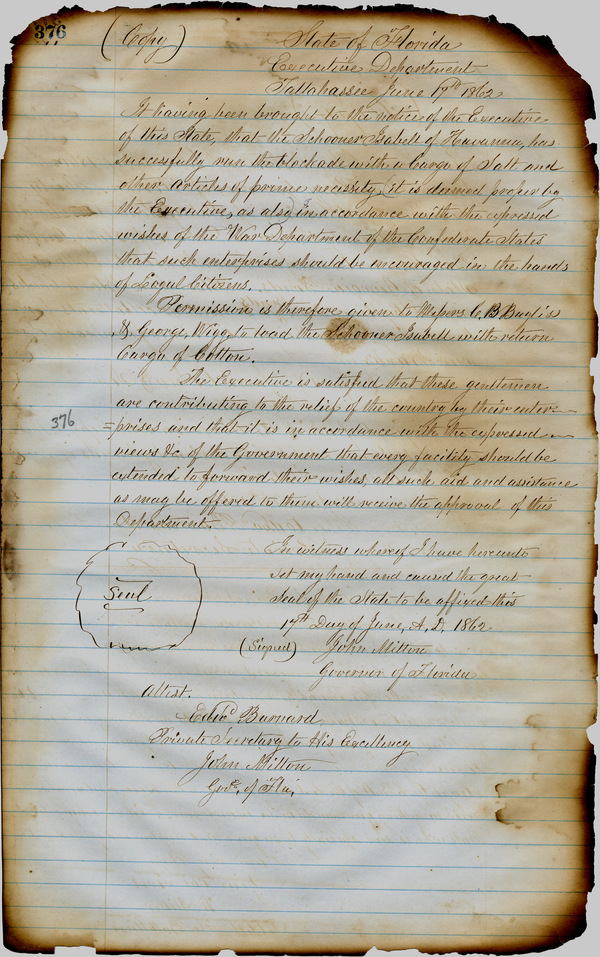 376
(Copy)
State of Florida
Executive Department
Tallahassee June 17th 1862
It having been brought to the notice of the Executive
of this State, that the Schooner Isabell of Havanna, has
successfully run the blockade with a Cargo of Salt and
other articles of prime necessity, it is deemed proper by
the Executive, as also in accordance with the expressed
wishes of the War Department of the Confederate States
that such enterprises should be encouraged in the hands
of Loyal Citizens.
Permission is therefore given to Messrs C. B.
& George Wigg, to load the Schooner Isabell with return
Cargo of Cotton.
The Executive is satisfied that these gentlemen
are contributing to the relief of the country by their enter-
376
=prises and that it is in accordance with the expressed
views &c. of the Government that every facility should be
extended to forward their wishes, all such aid and assistance
as may be offered to them will receive the approval of this
Department.
In witness whereof I have hereunto
set my hand and caused the great
Seal
Seal of the State to be affixed this
17th Day of June, A.D. 1862
(Signed) John Milton
Governor of Florida
Attest.
Edwd Barnard
Private Secretary to His Excellency
John Milton
Gov. of Fla.